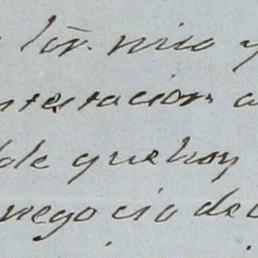 Sōr. mio y
ntestacion a
de que hoy
negocio de